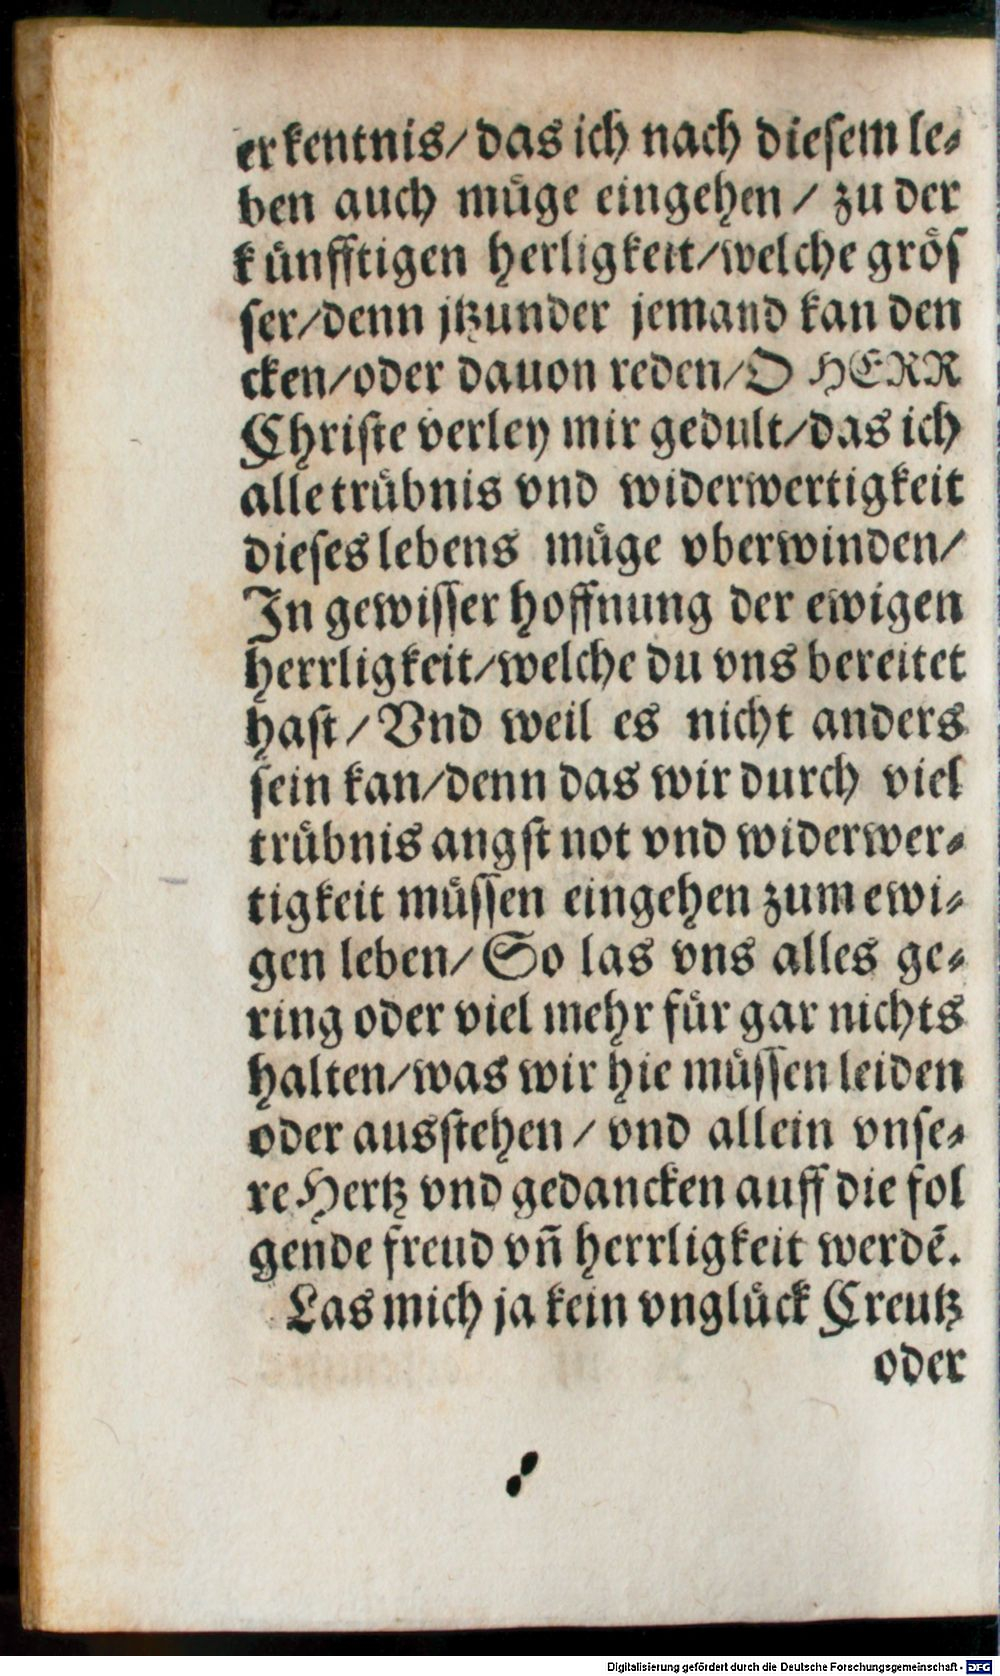 erkentnis/ das ich nach diesem le-
ben auch müge eingehen / zu der
künfftigen herligkeit/welche grös
ser/denn jtzunder jemand kan den
cken/oder dauon reden/O HERR
Christe verley mir gedult/das ich
alle trübnis vnd widerwertigkeit
dieses lebens müge vberwinden/
In gewisser hoffnung der ewigen
herrligkeit/welche du vns bereitet
hast / Vnd weil es nicht anders
sein kan/denn das wir durch viel
trübnis angst not vnd widerwer-
tigkeit müssen eingehen zum ewi-
gen leben/ So las vns alles ge-
ring oder viel mehr für gar nichts
halten/was wir hie müssen leiden
oder ausstehen / vnd allein vnse-
re Hertz vnd gedancken auff die fol
gende freud vñ herrligkeit werdẽ.
Las mich ja kein vnglück Creutz
oder
Digitalisierung gefördert durch die Deutsche Forschungsgemeinschaft - DFG